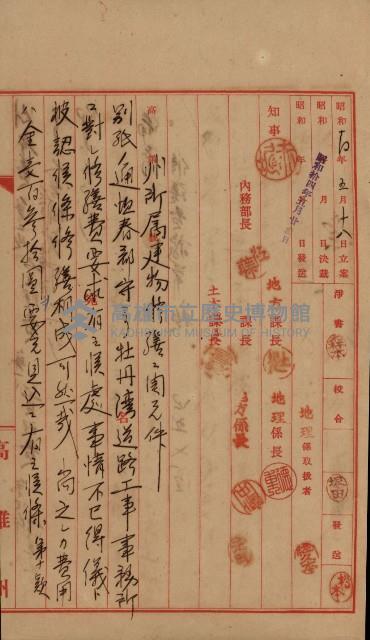 昭和十四年五月十八日立案
昭和 年 月 日決裁
昭和 年 月 日發送
昭和拾四年五月廿 日
淨書
校合
發送
知事
內務部長
地方課長
課長
土木課長
地理係長
係長
地理係取扱者
高雄市立歷史博物館
KAOHSIUNG MUSEUM OF HISTORY
州所属建物修繕ニ関スル件
別紙ノ通恒春郡守ヨリ牡丹湾道路工事事務所
ニ對シ修繕費要求有之候處事情不已得儀ト
被認候條修繕相成可然哉
尚之カ費用
金壹百參拾圓要スル見込ニ有之候條
高雄州